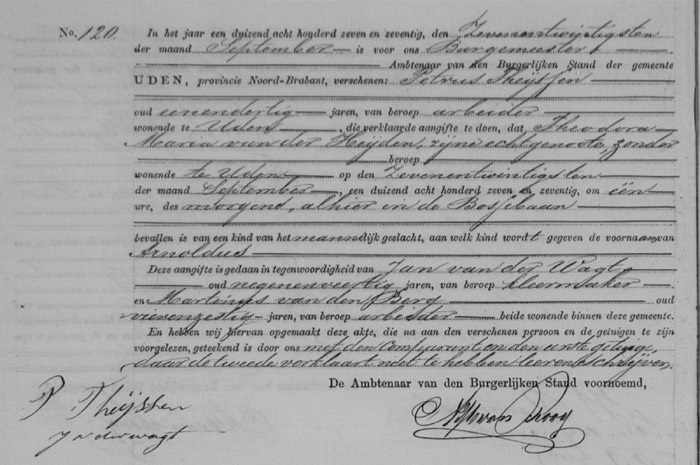 No. 120. In het jaar een duizend acht honderd zeven en zeventig, den Zevenentwintigsten
der maand September is voor ons Burgemeester
Ambtenaar van den Burgerlijken Stand der gemeente
UDEN, provincie Noord-Brabant, verschenen: Petrus Theijssen
oud eenendertig jaren, van beroep arbeider
wonende te Uden, die verklaarde aangifte te doen, dat Theodora
Maria van der Heijden, zijne echtgenoote, zonder
beroep
wonende te Uden op den Zevenentwintigsten
der maand September, een duizend acht honderd zeven en zeventig, om één
ure, des morgens, alhier in de Bossebaan
bevallen is van een kind van het mannelijk geslacht, aan welk kind wordt gegeven de voornaam van
Arnoldus
Deze aangifte is gedaan in tegenwoordigheid van Jan van der Wagt
oud negenenveertig jaren, van beroep kleermaker
en Martinus van den Berg oud
vierenzestig jaren, van beroep arbeider beide wonende binnen deze gemeente.
En hebben wij hiervan opgemaakt deze akte, die na aan den verschenen persoon en de getuigen te zijn
voorgelezen, geteekend is door ons met den comparant en den eerste getuige
daar de tweede verklaart niet te hebben leeren schrijven.
De Ambtenaar van den Burgerlijken Stand voornoemd,
P Theijssen
J v d wagt
van Rooy